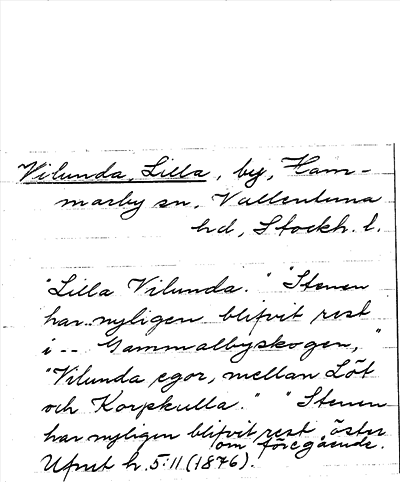 Vilunda, Lilla, by, Ham-
marby sn, Vallentuna
hd, Stockh. l.
"Lilla Vilunda." "Stenen
har nyligen blifvit rest
i -- Gammalbyskogen,"
"Vilunda egor, mellan Löt
och Korpkulla." "Stenen
har nyligen blifvit rest öster
om föregående.
Upnst h. 5:11 (1876).